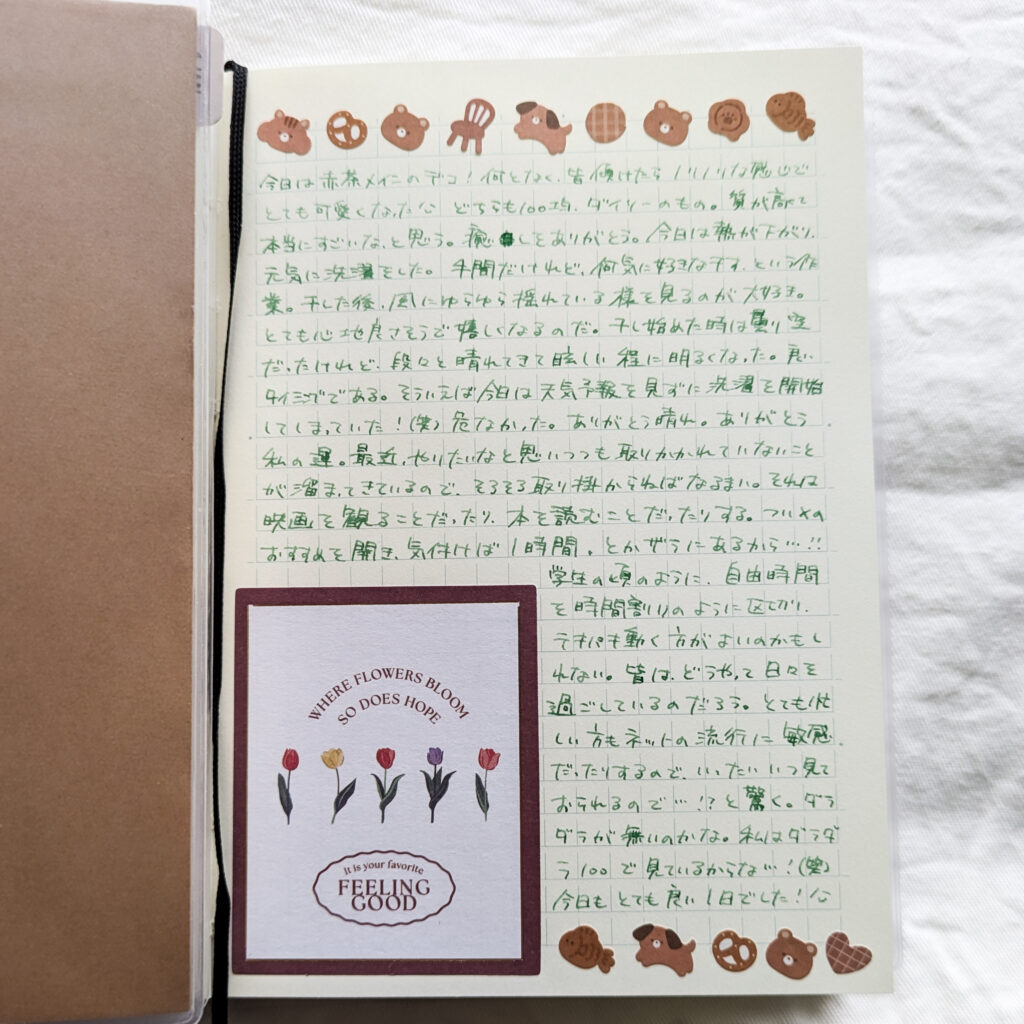 今日は赤茶メインのデコ！何となく、皆傾けたらノリノリな感じで
とても可愛くなった♡ どちらも100均、ダイソーのもの。質が高くて
本当にすごいな、と思う。癒しをありがとう。今日は熱が下がり、
元気に洗濯をした。手間だけれど、何気に好きな干す、という作
業。干した後、風にゆらゆら揺れている様を見るのが大好き。
とても心地良さそうで嬉しくなるのだ。干し始めた時は曇り空
だったけれど、段々と晴れてきて眩しい程に明るくなった。良い
タイミングである。そういえば今日は天気予報を見ずに洗濯を開始
してしまっていた！(笑) 危なかった。ありがとう晴れ。ありがとう
私の運。最近、やりたいなと思いつつも取りかかれていないこと
が溜まってきているので、そろそろ取り掛からねばなるまい。それは
映画を観ることだったり、本を読むことだったりする。ついXの
おすすめを開き、気付けば1時間、とかザラにあるから…!!
学生の頃のように、自由時間
を時間割りのように区切り、
テキパキ動く方がよいのかもし
れない。皆は、どうやって日々を
過ごしているのだろう。とても忙
しい方もネットの流行に敏感
だったりするので、いったいいつ見て
おられるので…!?と驚く。ダラ
ダラが無いのかな。私はダラダ
ラ100で見ているからな…！(笑)
今日もとても良い1日でした！♡
WHERE FLOWERS BLOOM
SO DOES HOPE
It is your favorite
FEELING
GOOD